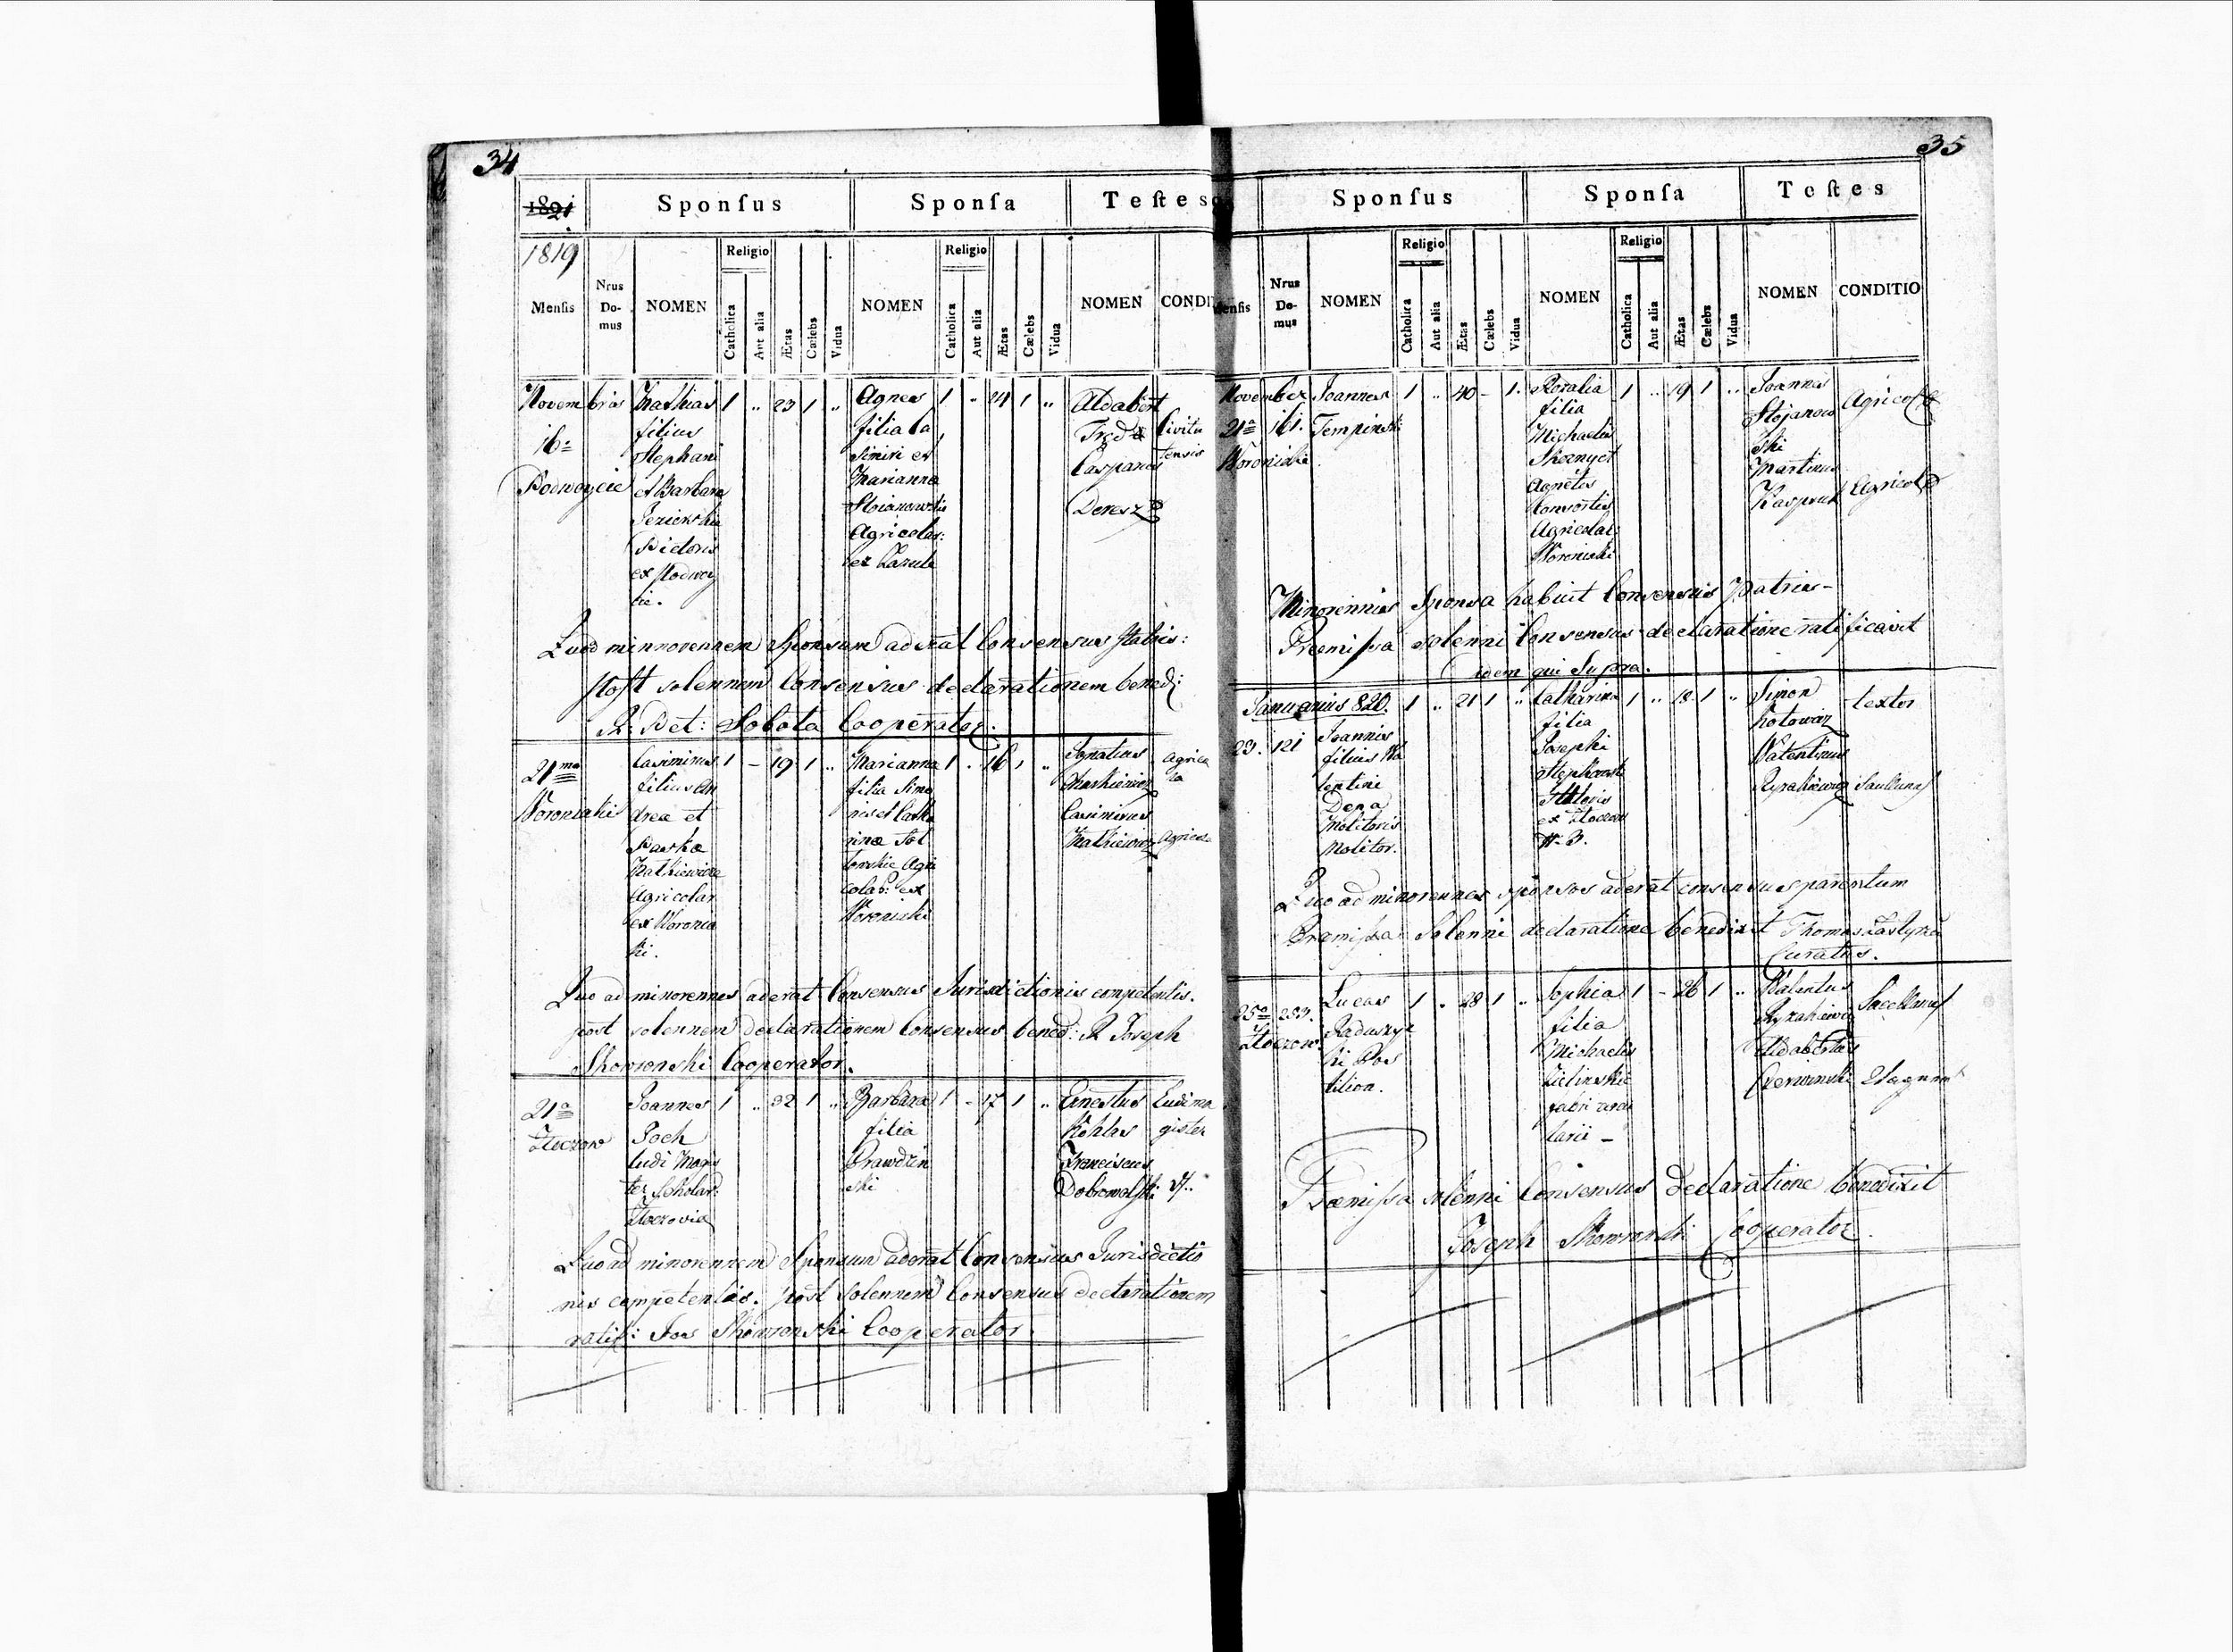 34
1801
21
Sponſus
Sponſa
Teſtes
1819
Menſis
Nrus Domus
NOMEN
Religio
Catholica
Aut alia
Ætas
Cælebs
Vidua
NOMEN
Religio
Catholica
Aut alia
Ætas
Cælebs
Vidua
NOMEN
CONDI
Novembris
16a
Podwoycie
Mathias
filius
Stephani
et Barbara
Pictoris
ex Podwoy
cie.
1 .. 23 1 ..
Agnes
filia Ca
simiri et
Marianna
Stoianowskie
Agricolar:
ex Zazule
1 .. 24 1 ..
Adalbert
Caspares
Deresz
Civita
tensis
Quod minnorennem Sponsam aderat Consensus Patris:
Post solennem Consensus declarationem bened:
R. Pet: Sobota Cooperator.
21ma
Woroniaki
Casimirus
filius An
drea et
Paska
Mathiewicze
Agricolar
ex Woronia
ki.
1 – 19 1 ..
Marianna
filia Simo
nis et Catha
rinæ Sol
towskie Agri
colar: ex
Woroniaki
1 . 16 1 ..
Ignatius
Casimirus
Mathiewicz
Agrico
la
Agricola
Quo ad minorennes aderat Consensus Jurisdictionis competentis.
post solennem declarationem Consensus bened: R Joseph
Skowronski Cooperator.
21a
Zloczow
Joannes
Poch
Ludi Magis
ter Scholar:
Zloczovia
1 .. 32 1 ..
Barbara
filia
Prawdzin
ski
1 – 17 1 ..
Ernestus
Kohlas
Franciscus
Dobrowolski
Ludima
gister
Quoad minorennem Sponsam aderat Consensus Jurisdictio
nis competentis. post Solennem Consensus declarationem
ratif: Jos Skowronski Cooperator.
35
Sponſus
Sponſa
Teſtes
Menſis
Nrus Domus
NOMEN
Religio
Catholica
Aut alia
Ætas
Cælebs
Vidua
NOMEN
Religio
Catholica
Aut alia
Ætas
Cælebs
Vidua
NOMEN
CONDITIO
November
21a 161.
Woroniaki
Joannes
Tempinski
1 .. 40 – 1.
Rozalia
filia
Michaelis
Agnetis
Consortis
Agricolae
Woroniaki
1 .. 19 1 ..
Joannes
Stojanow
ski
Martinus
Kaspruk
Agricola
Agricola
Minorennis Sponsa habuit Consensus Patris –
Præmissa solenni Consensus declaratione ratificavit
idem qui Supra.
Januarius 820.
23. 121
Joannes
filius Va
lentini
Depa
Molitoris
Molitor.
1 .. 21 1 ..
Catharina
filia
Josephi
ex Zloczow
N. 3.
1 .. 18 1 ..
Simon
Kotowicz
Valentinus
textor
Quo ad minorennes sponsos aderat consensus parentum
Præmissa Solenni declaratione benedixit Thomas
Curatus.
25a 233.
Zloczow.
Lucas
Raduszyc
ki Pos
tilion.
1 . 28 1 ..
Sophia
filia
Michaelis
Zielinskie
1 – 26 1 ..
Adalbertus
Czerwinski
Præmissa solenni Consensus declaratione benedixit
Joseph Skowronski Cooperator.